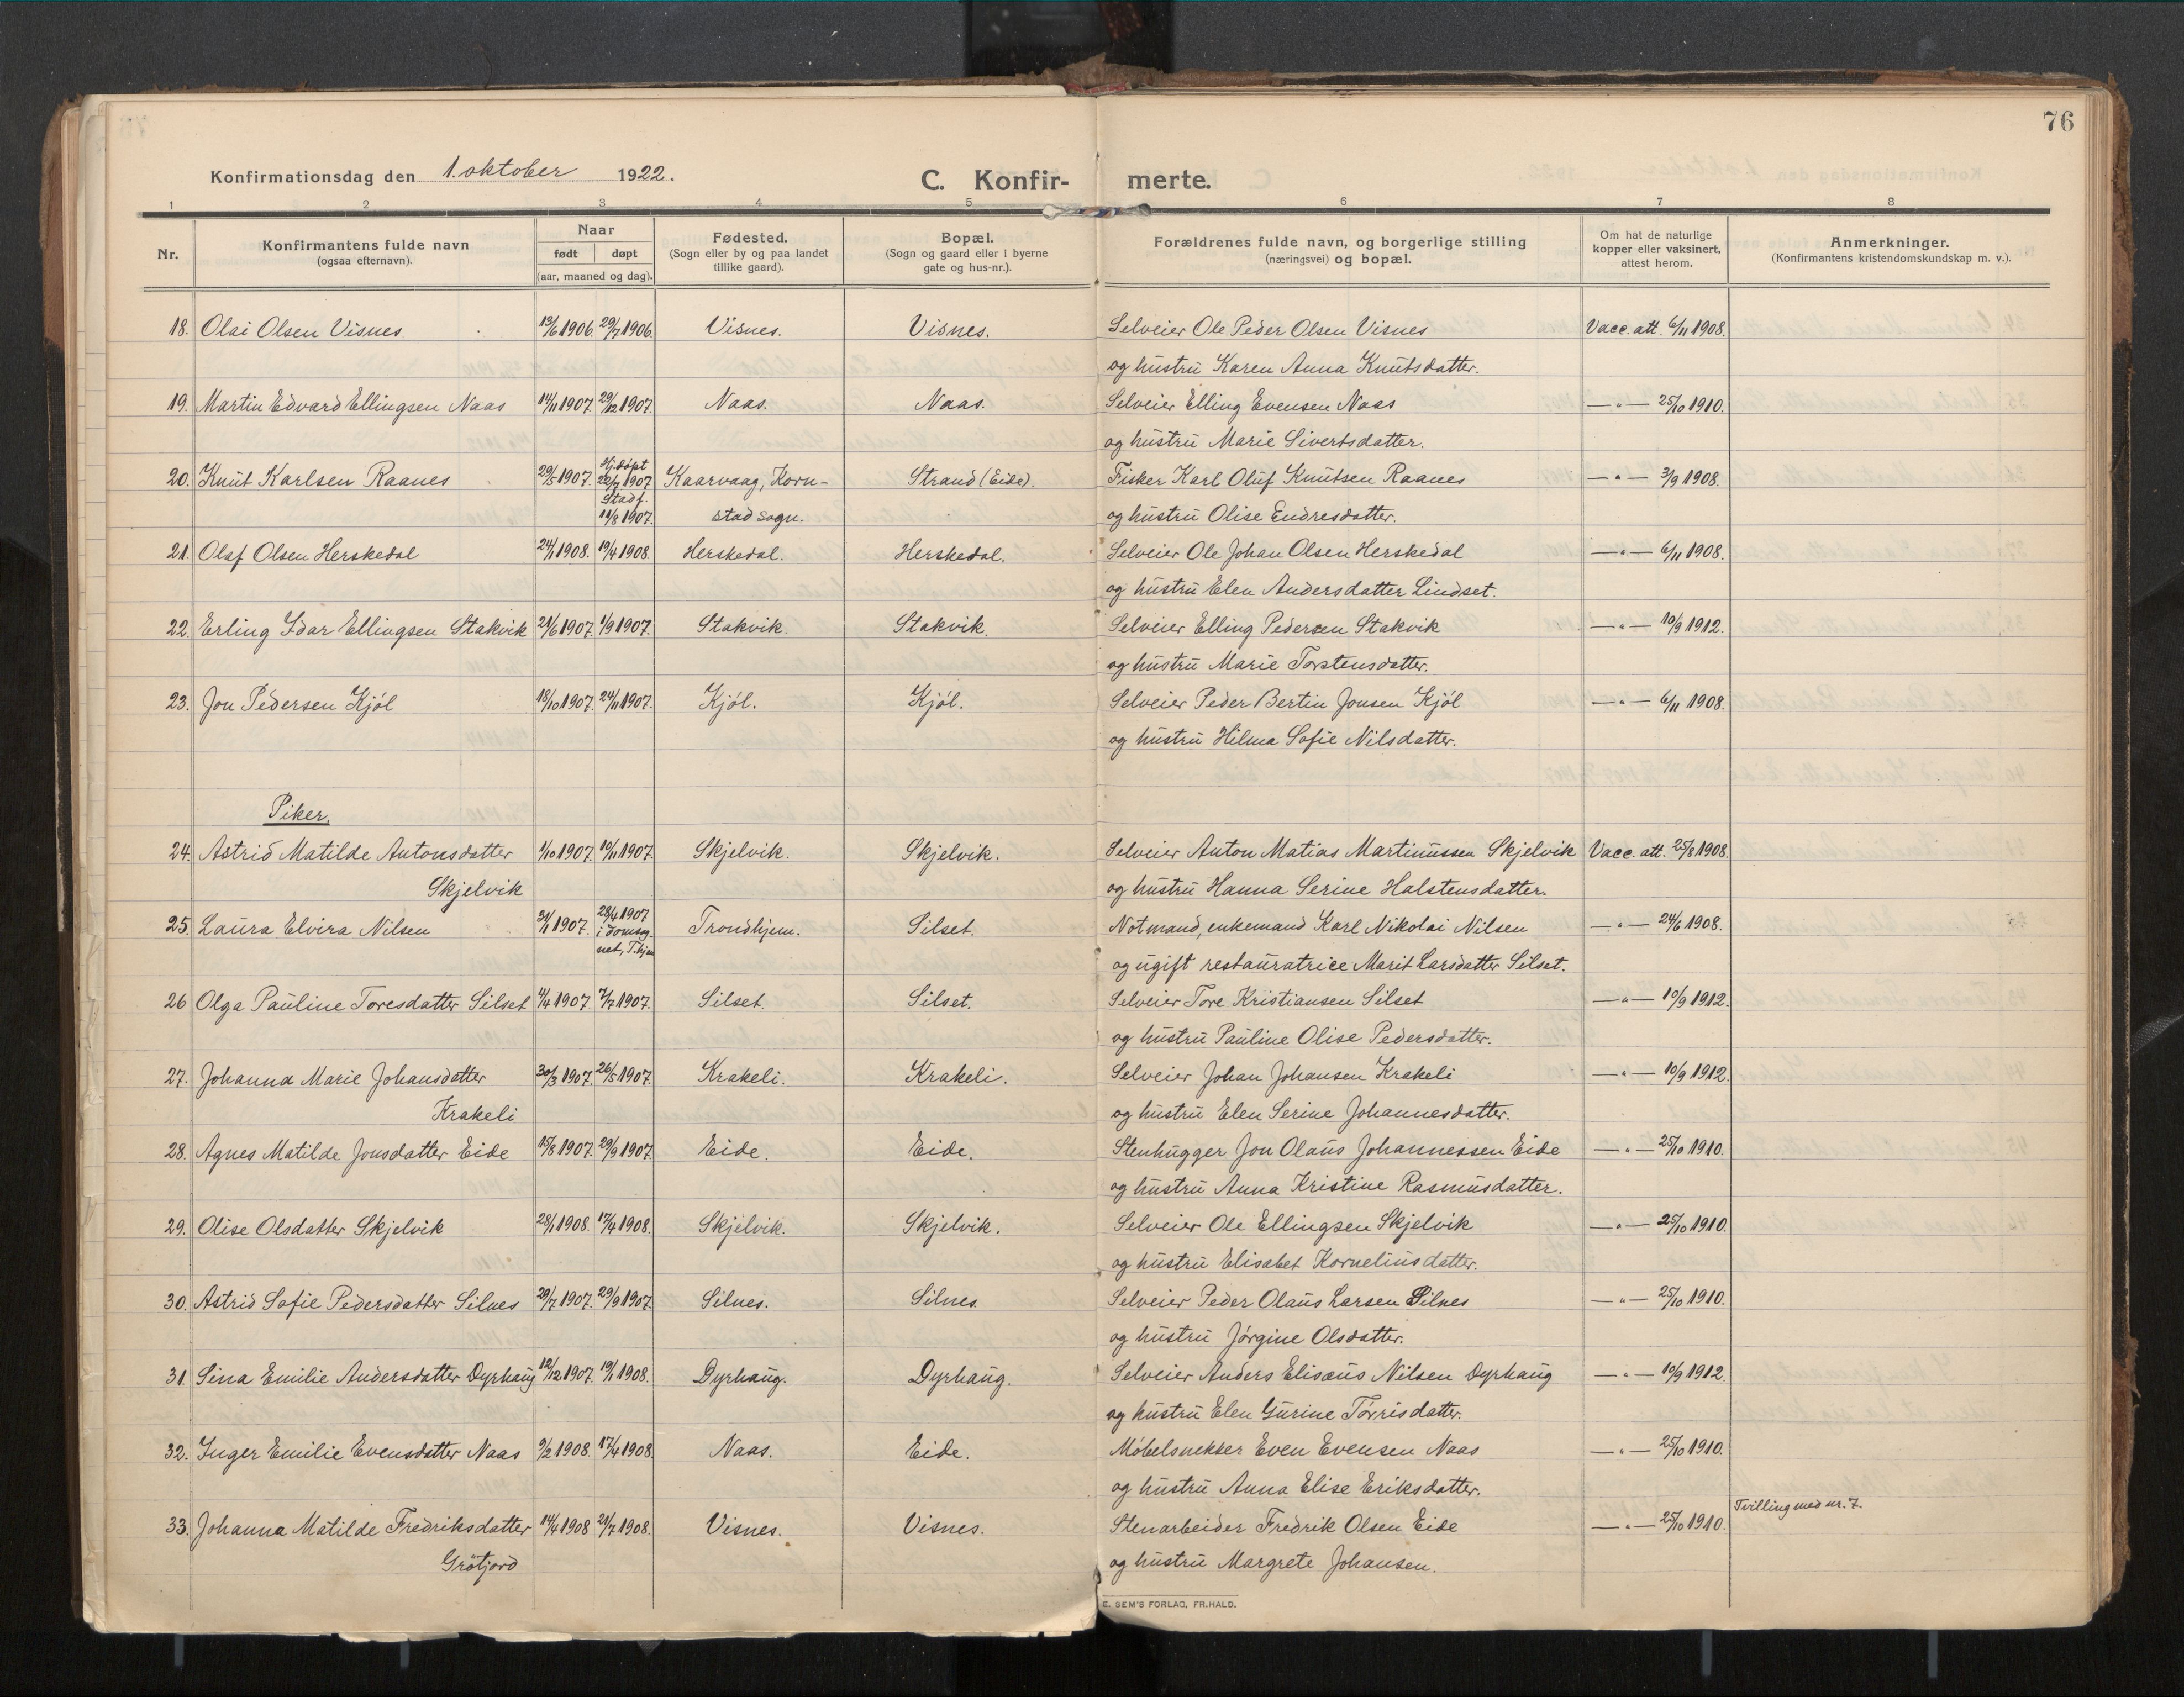 76
Konfirmationsdag den 1. oktober 1922.
C. Konfir- merte.
1 2 3 4 5 6 7 8
Nr.
Konfirmantens fulde navn
(ogsaa efternavn).
Naar
født døpt
(aar, maaned og dag).
Fødested.
(Sogn eller by og paa landet
tillike gaard).
Bopæl.
(Sogn og gaard eller i byerne
gate og hus-nr.).
Forældrenes fulde navn, og borgerlige stilling
(næringsvei) og bopæl.
Om hat de naturlige
kopper eller vaksinert,
attest herom.
Anmerkninger.
(Konfirmantens kristendomskundskap m. v.).
18. Olai Olsen Visnes 13/6 1906. 29/7 1906. Visnes. Visnes. Selveier Ole Peder Olsen Visnes Vacc. att. 6/11 1908.
og hustru Karen Anna Knutsdatter.
19. Martin Edvard Ellingsen Naas 14/11 1907. 29/12 1907. Naas. Naas. Selveier Elling Evensen Naas —"— 25/10 1910.
og hustru Marie Sivertsdatter.
20. Knut Karlsen Raanes 29/5 1907. Hj.døpt 22/7 1907 Stadf. 11/8 1907. Kaarvaag, Korn- Strand (Eide). Fisker Karl Oluf Knutsen Raanes —"— 3/9 1908.
stad sogn. og hustru Olise Endresdatter.
21. Olaf Olsen Herskedal 24/1 1908. 19/4 1908. Herskedal. Herskedal. Selveier Ole Johan Olsen Herskedal —"— 6/11 1908.
og hustru Elen Andersdatter Lindset.
22. Erling Idar Ellingsen Stakvik 21/6 1907. 1/9 1907. Stakvik. Stakvik. Selveier Elling Pedersen Stakvik —"— 10/9 1912.
og hustru Marie Torstensdatter.
23. Jon Pedersen Kjól 18/10 1907. 24/11 1907. Kjól. Kjól. Selveier Peder Bertin Jonsen Kjól —"— 6/11 1908.
og hustru Hilma Sofie Nilsdatter.
Piker.
24. Astrid Matilde Antonsdatter 1/10 1907. 10/11 1907. Skjelvik. Skjelvik. Selveier Anton Matias Martinussen Skjelvik Vacc. att. 25/8 1908.
Skjelvik og hustru Hanna Serine Halstensdatter.
25. Laura Elvira Nilsen 31/1 1907. 28/4 1907 i domsog net, T.hjem Trondhjem. Silset. Notmand, enkemand Karl Nikolai Nilsen —"— 24/6 1908.
og ugift restauratrice Marit Larsdatter Silset.
26 Olga Pauline Toresdatter Silset 4/4 1907. 7/7 1907. Silset. Silset. Selveier Tore Kristiansen Silset —"— 10/9 1912.
og hustru Pauline Olise Pedersdatter.
27. Johanna Marie Johansdatter 30/3 1907. 26/5 1907. Krakeli. Krakeli. Selveier Johan Johansen Krakeli —"— 10/9 1912.
Krakeli og hustru Elen Serine Johannesdatter.
28. Agnes Matilde Jonsdatter Eide 15/8 1907. 29/9 1907. Eide. Eide. Stenhugger Jon Olaus Johannessen Eide —"— 25/10 1910.
og hustru Anna Kristine Rasmusdatter.
29. Olise Olsdatter Skjelvik 28/1 1908. 17/4 1908. Skjelvik. Skjelvik. Selveier Ole Ellingsen Skjelvik —"— 25/10 1910.
og hustru Elisabet Korneliusdatter.
30. Astrid Sofie Pedersdatter Silnes 29/7 1907. 29/9 1907. Silnes. Silnes. Selveier Peder Olaus Larsen Silnes —"— 25/10 1910.
og hustru Jórgine Olsdatter.
31. Sina Emilie Andersdatter Dyrhaug 12/12 1907. 19/1 1908. Dyrhaug. Dyrhaug. Selveier Anders Elisæus Nilsen Dyrhaug —"— 10/9 1912.
og hustru Elen Gurine Tórrisdatter.
32. Inger Emilie Evensdatter Naas 9/2 1908. 17/4 1908. Naas. Eide. Móbelsnekker Even Evensen Naas —"— 25/10 1910.
og hustru Anna Elise Eriksdatter.
33. Johanna Matilde Fredriksdatter 14/4 1908 21/7 1908. Visnes. Visnes. Stenarbeider Fredrik Olsen Eide —"— 25/10 1910. Tvilling med nr. 7.
Grötjord og hustru Margrete Johansen.
E. SEM'S FORLAG, FR.HALD.